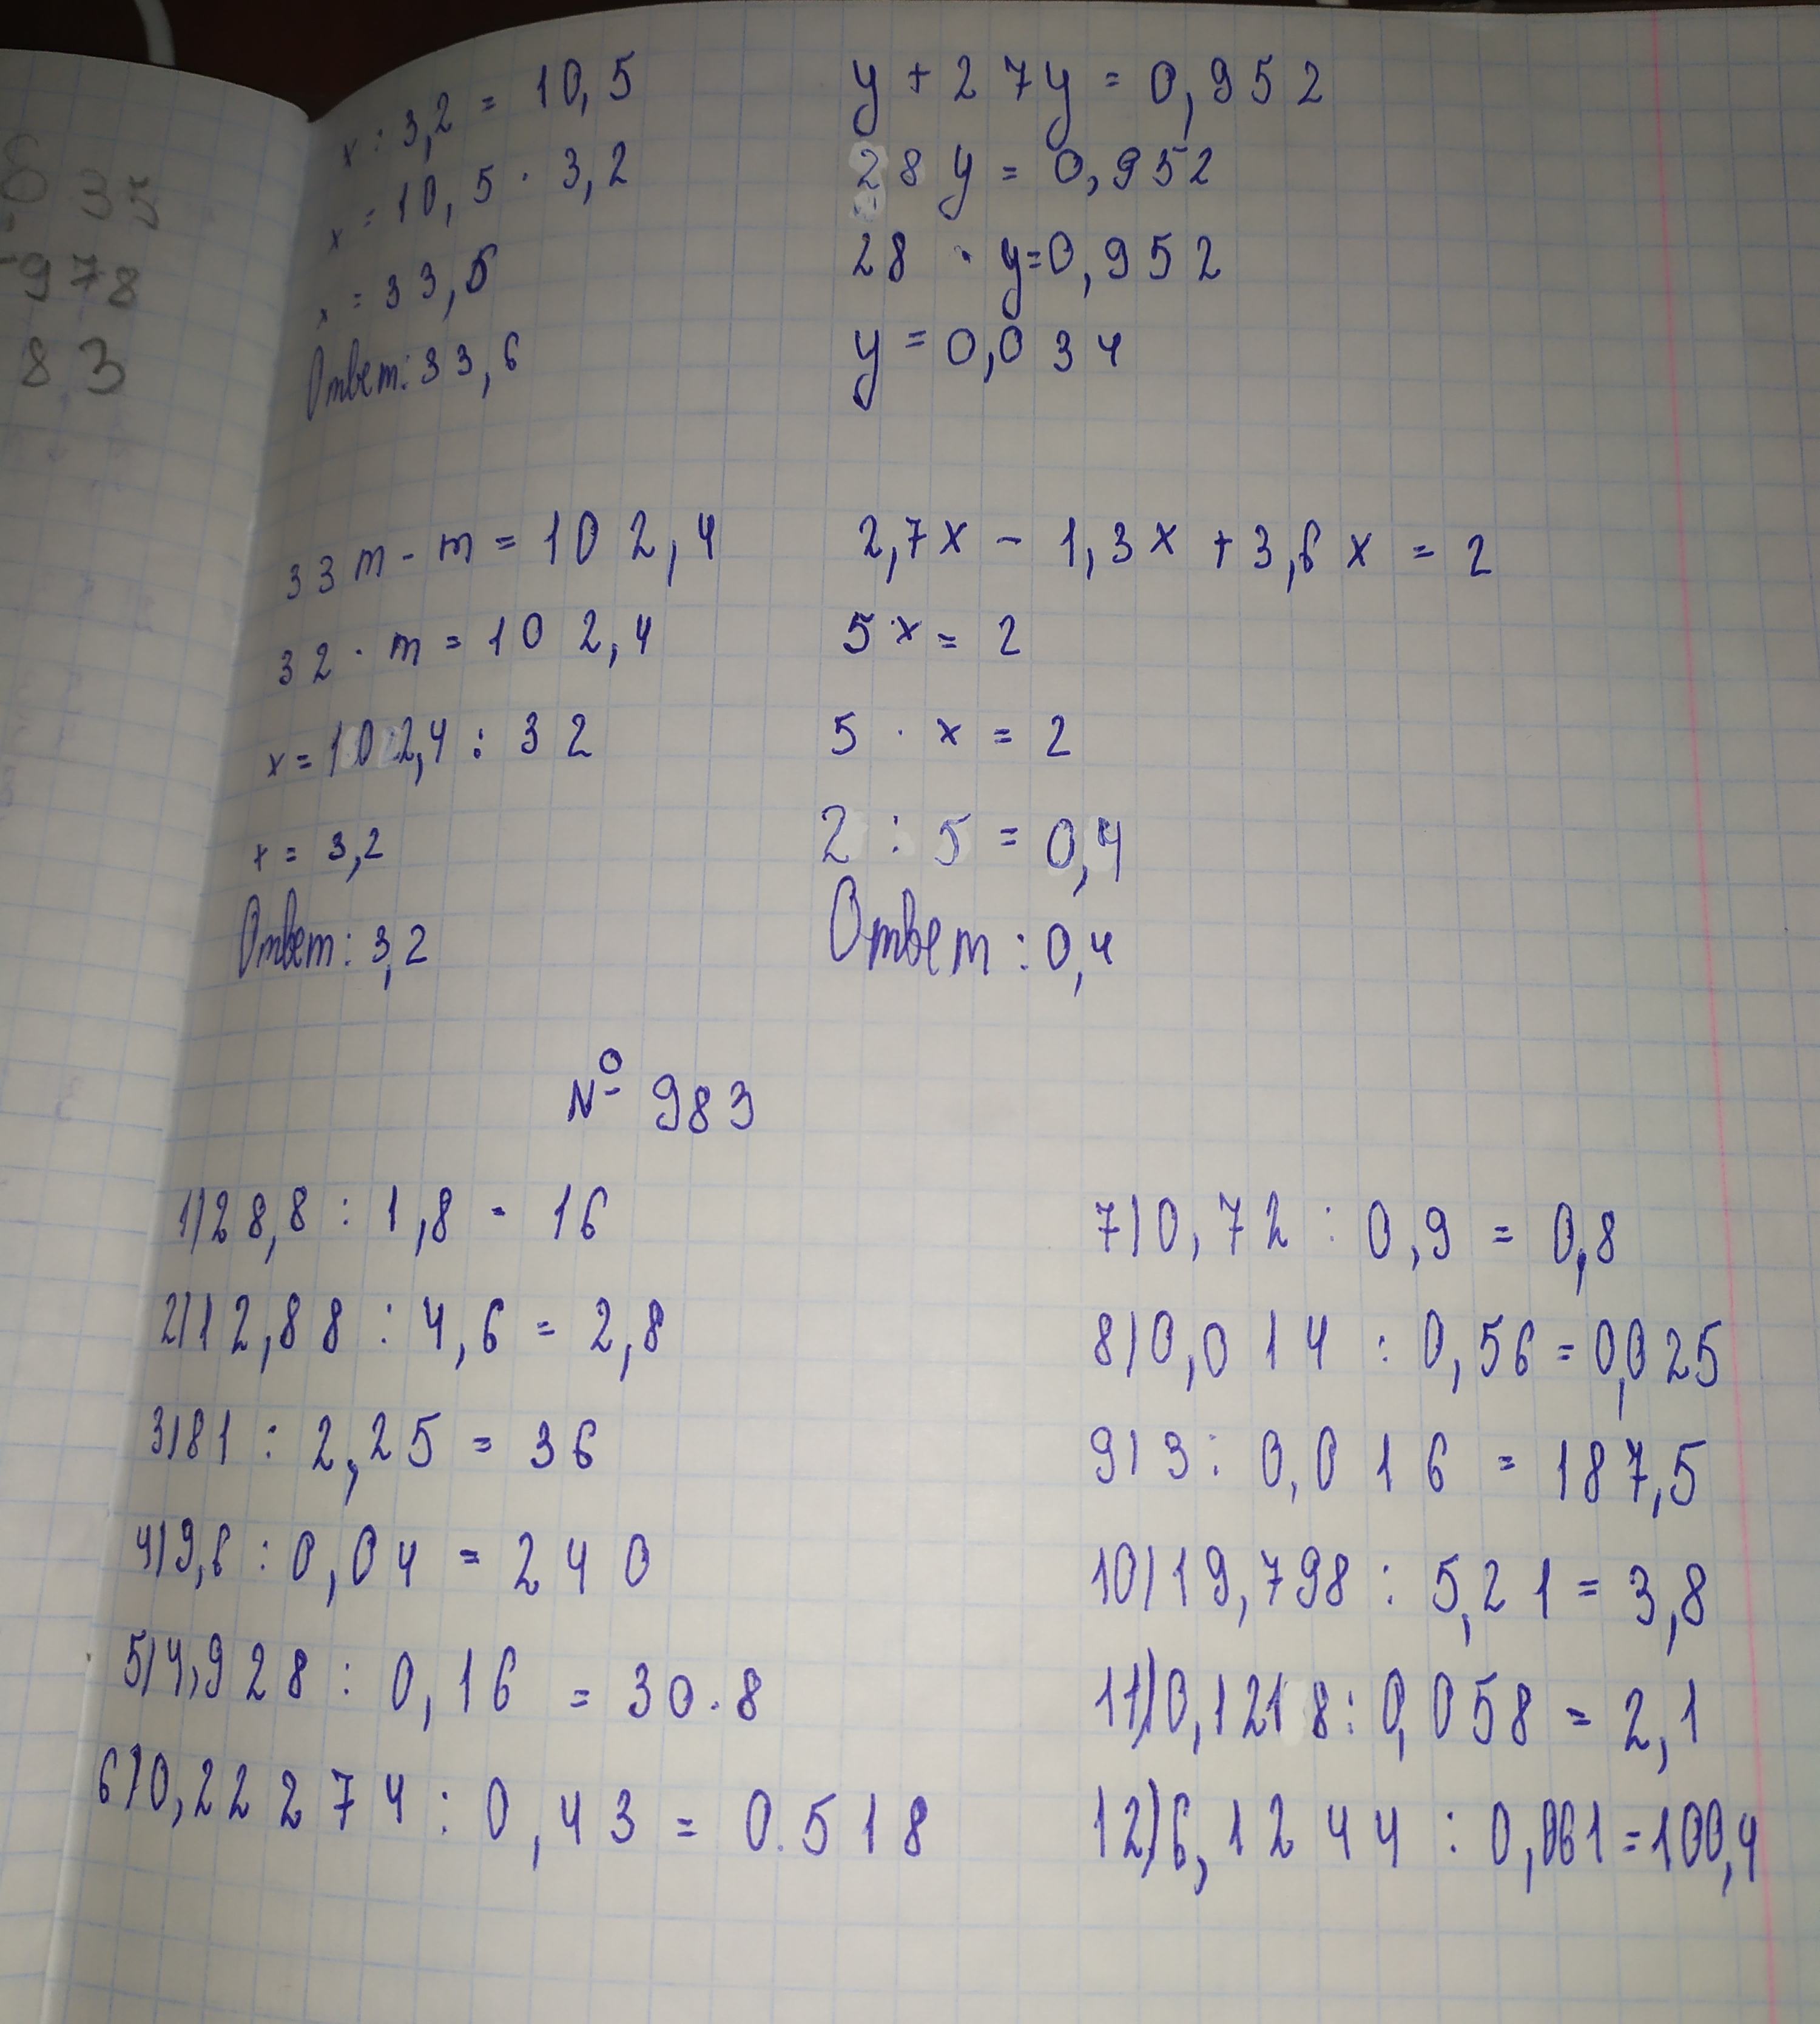 6 35
-978
83
x : 3,2 = 10,5
x = 10,5 · 3,2
x = 33,6
Ответ: 33,6
y + 27y = 0,952
28y = 0,952
28 · y = 0,952
y = 0,034
33m - m = 102,4
32 · m = 102,4
x = 102,4 : 32
x = 3,2
Ответ: 3,2
2,7x - 1,3x + 3,6x = 2
5x = 2
5 · x = 2
2 : 5 = 0,4
Ответ: 0,4
№ 983
1) 28,8 : 1,8 = 16
2) 12,88 : 4,6 = 2,8
3) 81 : 2,25 = 36
4) 9,6 : 0,04 = 240
5) 4,928 : 0,16 = 30.8
6) 0,22274 : 0,43 = 0.518
7) 0,72 : 0,9 = 0,8
8) 0,014 : 0,56 = 0,025
9) 3 : 0,016 = 187,5
10) 19,798 : 5,21 = 3,8
11) 0,1218 : 0,058 = 2,1
12) 6,1244 : 0,061 = 100,4